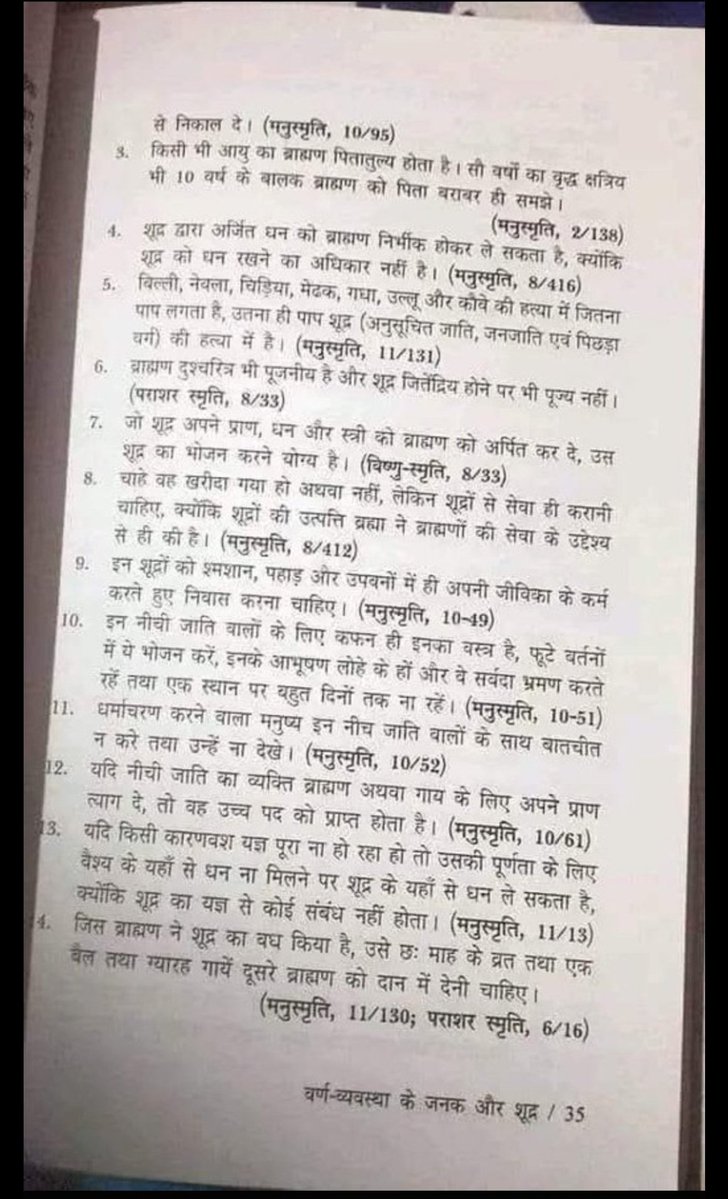 से निकाल दे। (मनुस्मृति, 10/95)
3. किसी भी आयु का ब्राह्मण पितातुल्य होता है। सौ वर्षों का वृद्ध क्षत्रिय
भी 10 वर्ष के बालक ब्राह्मण को पिता बराबर ही समझे।
(मनुस्मृति, 2/138)
4. शूद्र द्वारा अर्जित धन को ब्राह्मण निर्भीक होकर ले सकता है, क्योंकि
शूद्र को धन रखने का अधिकार नहीं है। (मनुस्मृति, 8/416)
5. बिल्ली, नेवला, चिड़िया, मेढक, गधा, उल्लू और कौवे की हत्या में जितना
पाप लगता है, उतना ही पाप शूद्र (अनुसूचित जाति, जनजाति एवं पिछड़ा
वर्ग) की हत्या में है। (मनुस्मृति, 11/131)
6. ब्राह्मण दुश्चरित्र भी पूजनीय है और शूद्र जितेंद्रिय होने पर भी पूज्य नहीं।
(पराशर स्मृति, 8/33)
7. जो शूद्र अपने प्राण, धन और स्त्री को ब्राह्मण को अर्पित कर दे, उस
शूद्र का भोजन करने योग्य है। (विष्णु-स्मृति, 8/33)
8. चाहे वह खरीदा गया हो अथवा नहीं, लेकिन शूद्रों से सेवा ही करानी
चाहिए, क्योंकि शूद्रों की उत्पत्ति ब्रह्मा ने ब्राह्मणों की सेवा के उद्देश्य
से ही की है। (मनुस्मृति, 8/412)
9. इन शूद्रों को श्मशान, पहाड़ और उपवनों में ही अपनी जीविका के कर्म
करते हुए निवास करना चाहिए। (मनुस्मृति, 10-49)
10. इन नीची जाति वालों के लिए कफन ही इनका वस्त्र है, फूटे बर्तनों
में ये भोजन करें, इनके आभूषण लोहे के हों और वे सर्वदा भ्रमण करते
रहें तथा एक स्थान पर बहुत दिनों तक ना रहें। (मनुस्मृति, 10-51)
11. धर्माचरण करने वाला मनुष्य इन नीच जाति वालों के साथ बातचीत
न करे तथा उन्हें ना देखे। (मनुस्मृति, 10/52)
12. यदि नीची जाति का व्यक्ति ब्राह्मण अथवा गाय के लिए अपने प्राण
त्याग दे, तो वह उच्च पद को प्राप्त होता है। (मनुस्मृति, 10/61)
13. यदि किसी कारणवश यज्ञ पूरा ना हो रहा हो तो उसकी पूर्णता के लिए
वैश्य के यहाँ से धन ना मिलने पर शूद्र के यहाँ से धन ले सकता है,
क्योंकि शूद्र का यज्ञ से कोई संबंध नहीं होता। (मनुस्मृति, 11/13)
4. जिस ब्राह्मण ने शूद्र का वध किया है, उसे छः माह के व्रत तथा एक
बैल तथा ग्यारह गायें दूसरे ब्राह्मण को दान में देनी चाहिए।
(मनुस्मृति, 11/130; पराशर स्मृति, 6/16)
वर्ण-व्यवस्था के जनक और शूद्र / 35